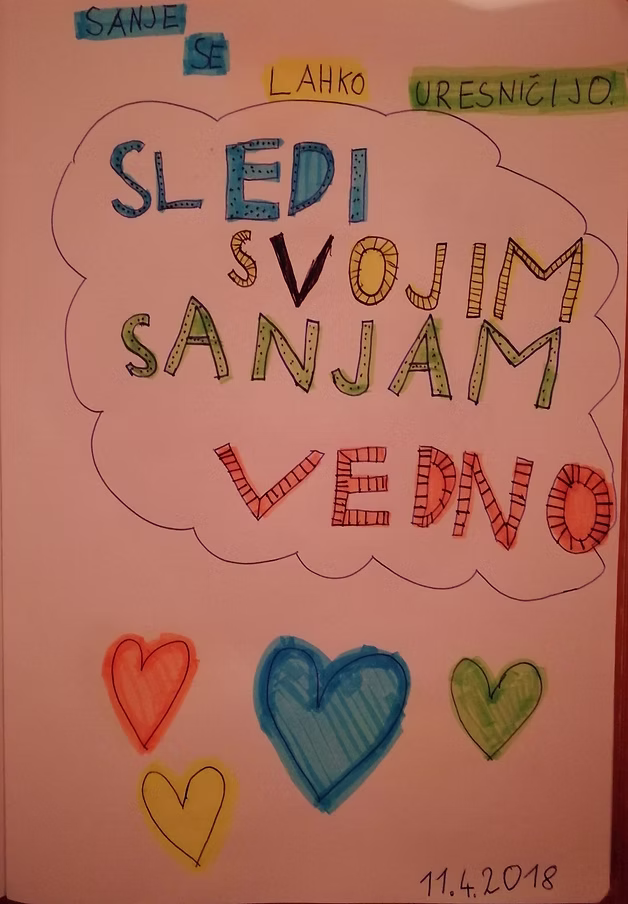 SANJE
SE
LAHKO
URESNIČIJO.
SLEDI
SVOJIM
SANJAM
VEDNO
11.4.2018